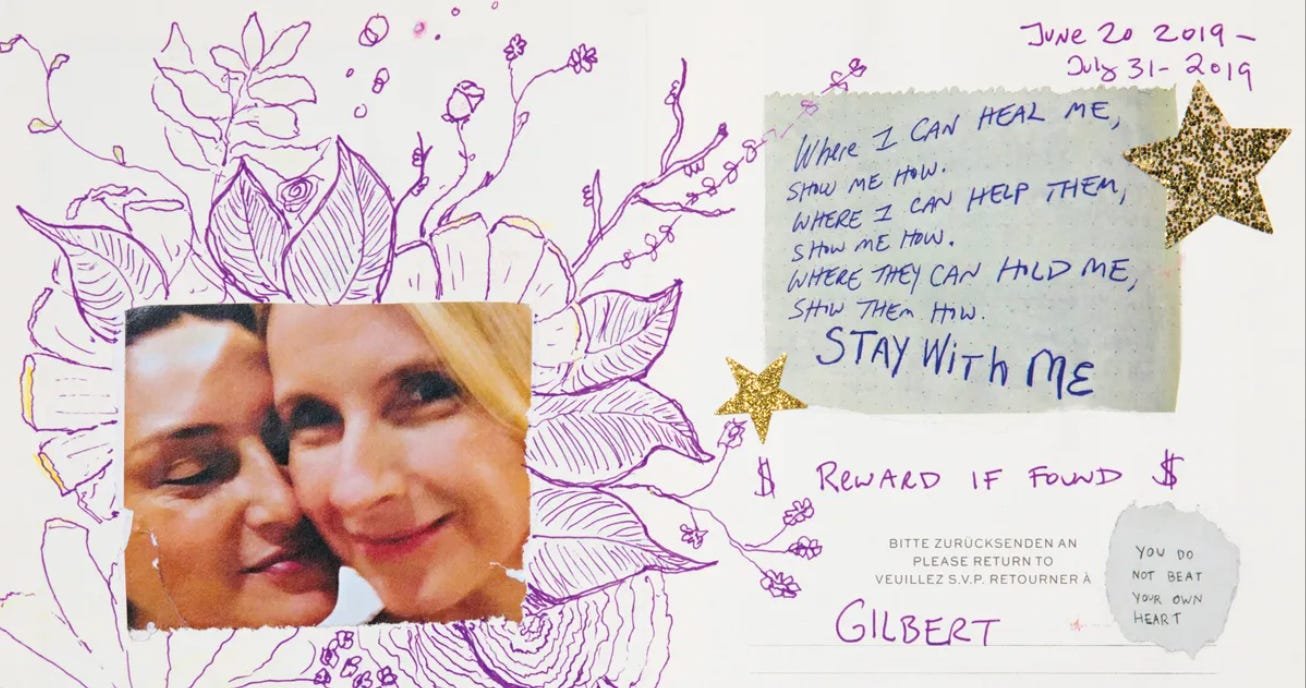 June 20 2019 –
July 31 - 2019
Where I CAN HEAL ME,
SHOW ME HOW.
WHERE I CAN HELP THEM,
SHOW ME HOW.
WHERE THEY CAN HOLD ME,
SHOW THEM HOW.
STAY WITH ME
$ REWARD IF FOUND $
BITTE ZURÜCKSENDEN AN
PLEASE RETURN TO
VEUILLEZ S.V.P. RETOURNER À
GILBERT
YOU DO
NOT BEAT
YOUR OWN
HEART